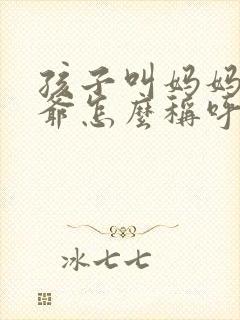 孩子叫妈妈
爺怎麼稱呼
冰七七